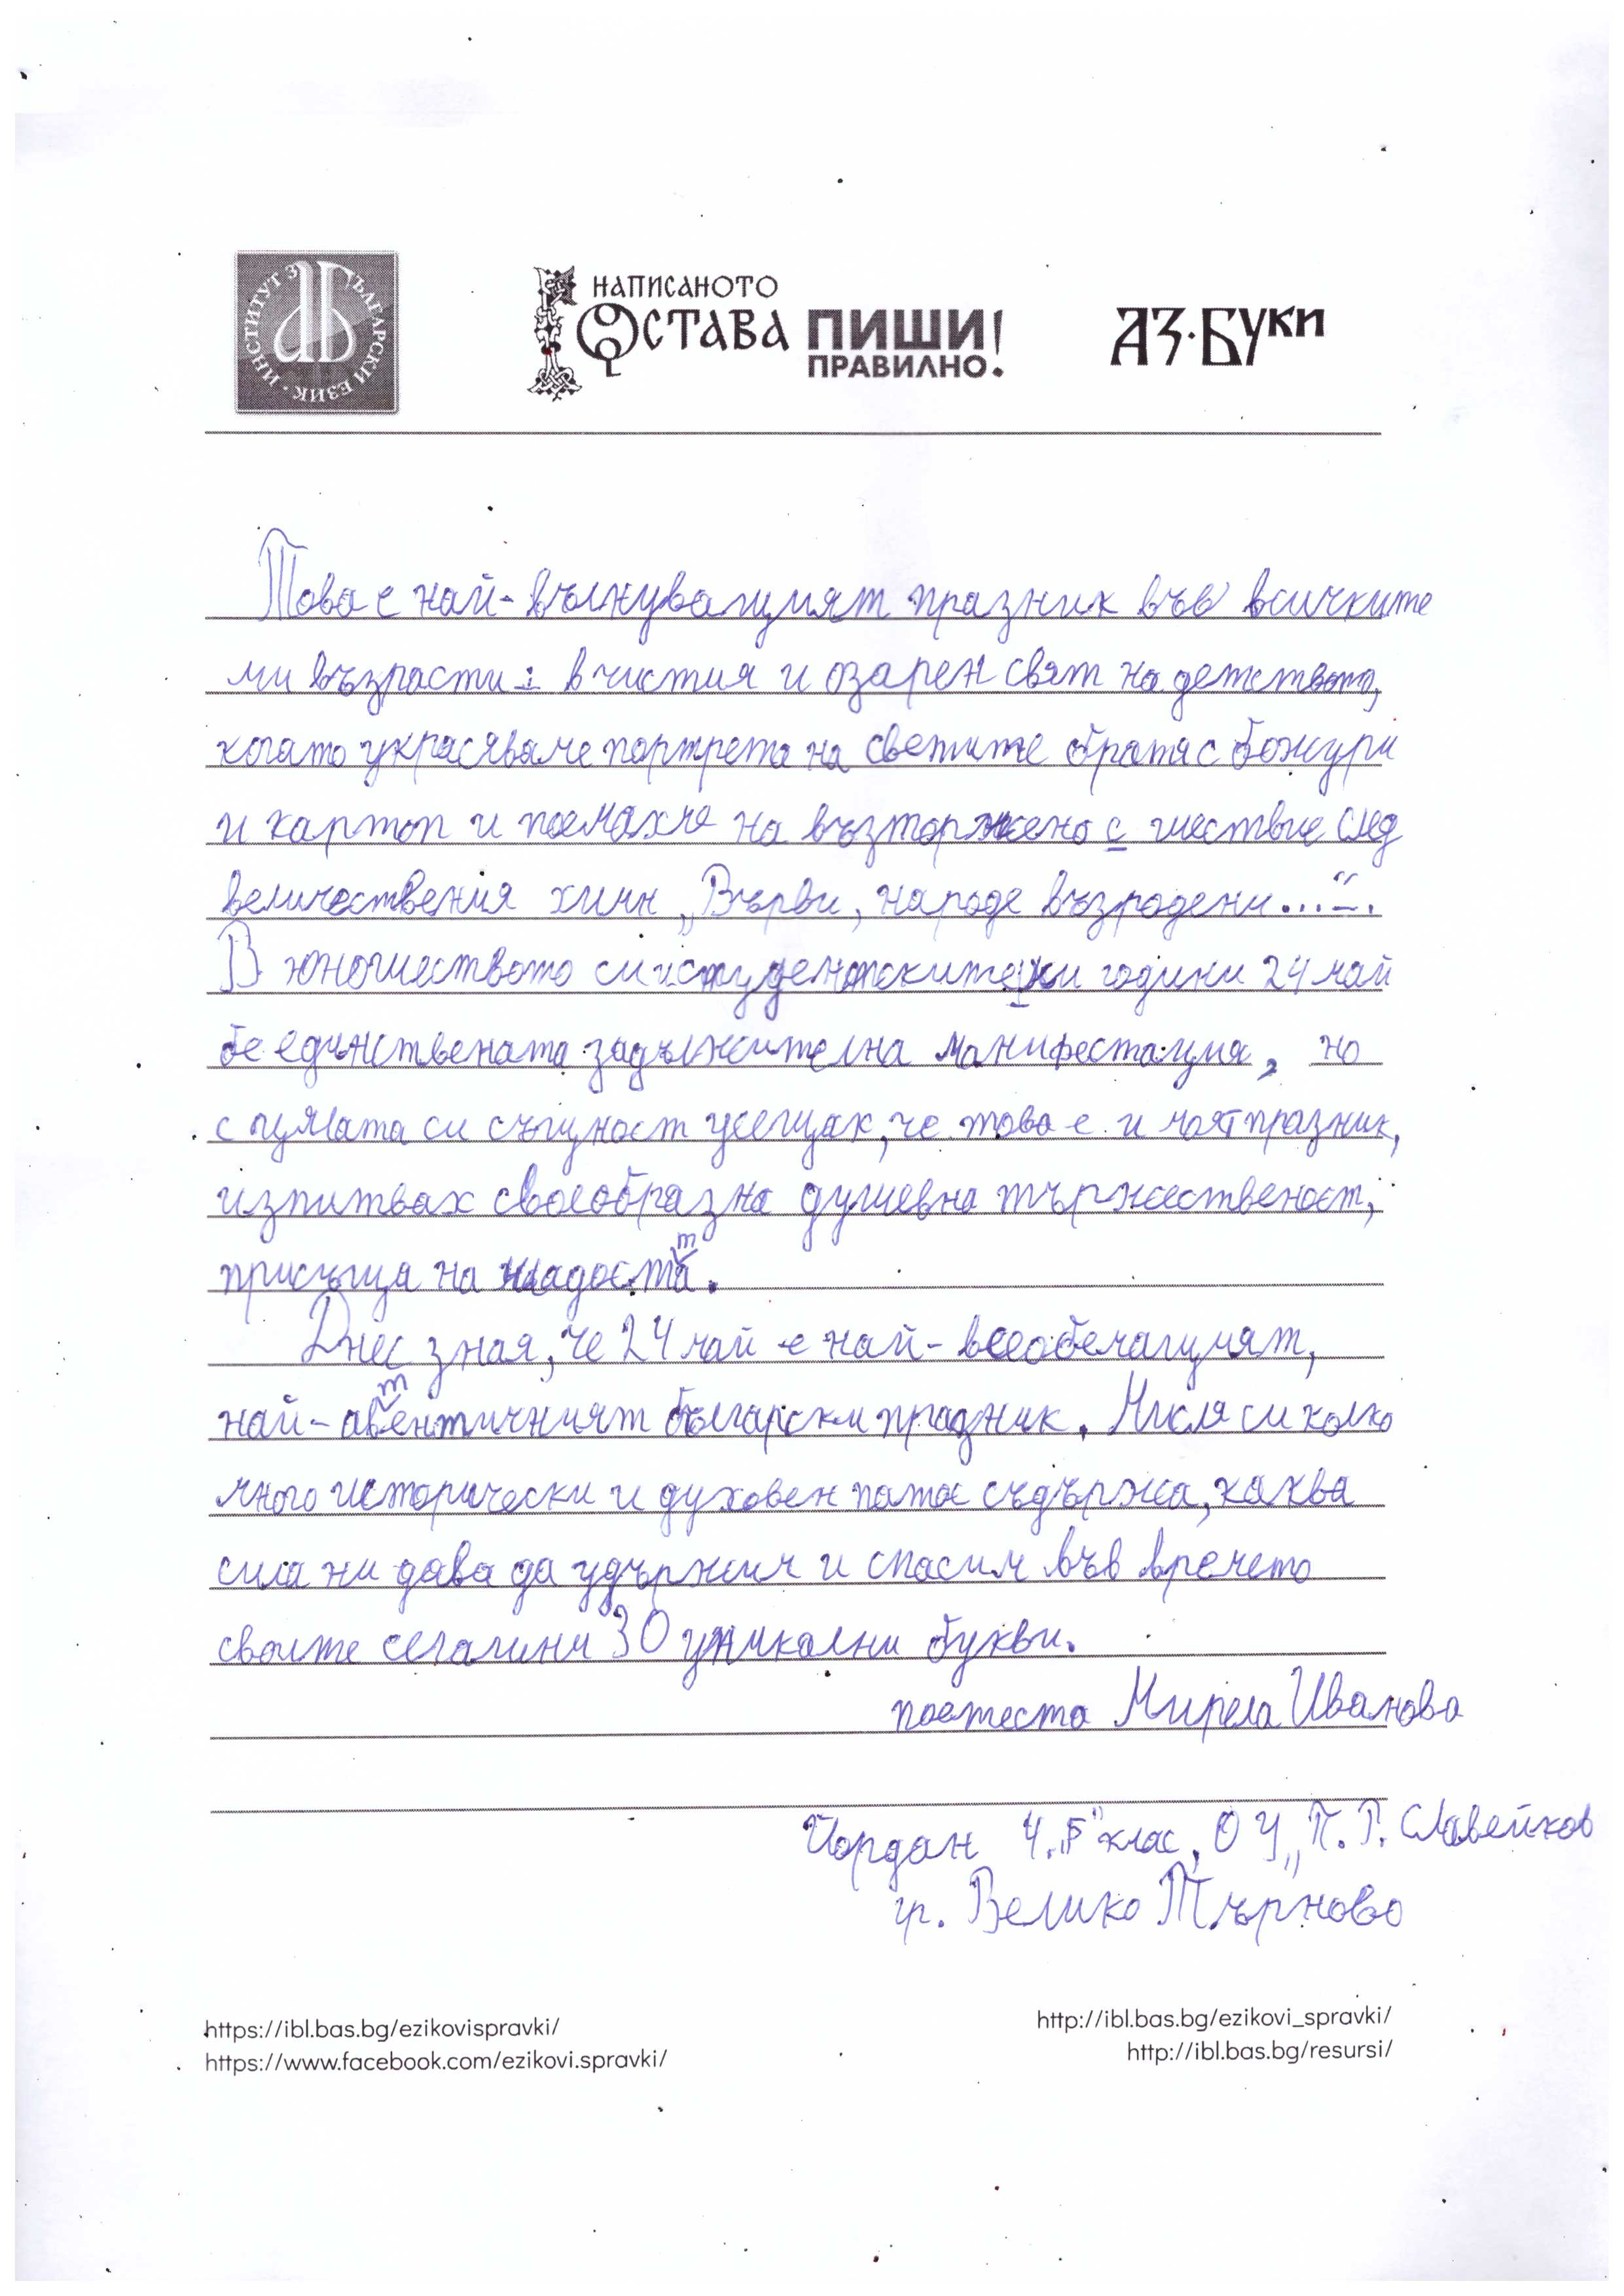 ИНСТИТУТ ЗА БЪЛГАРСКИ ЕЗИК
НАПИСАНОТО
ОСТАВА ПИШИ
ПРАВИЛНО!
АЗ·БУКИ
Това е най-вълнуващият празник във всичките
ми възрасти: в чистия и озарен свят на детството,
когато украсяваме портрета на светите братя с божури
и картоп и поемахме на възторжено с шествие след
величествения химн „Върви, народе възродени...“.
В юношеството си и студентските ми години 24 май
бе единствената задължителна манифестация, но
с цялата си същност усещах, че това е и моят празник,
изпитвах своеобразна душевна тържественост,
присъща на младостта.
Днес зная, че 24 май е най-всеобемащият,
най-автентичният български празник. Мисля си колко
много исторически и духовен патос съдържа, каква
сила ни дава да удържим и спасим във времето
своите сегашни 30 уникални букви.
поетеста Мирела Иванова
Йордан 4. „Б“ клас, ОУ „П. Р. Славейков
гр. Велико Търново
https://ibl.bas.bg/ezikovispravki/
https://www.facebook.com/ezikovi.spravki/
http://ibl.bas.bg/ezikovi_spravki/
http://ibl.bas.bg/resursi/